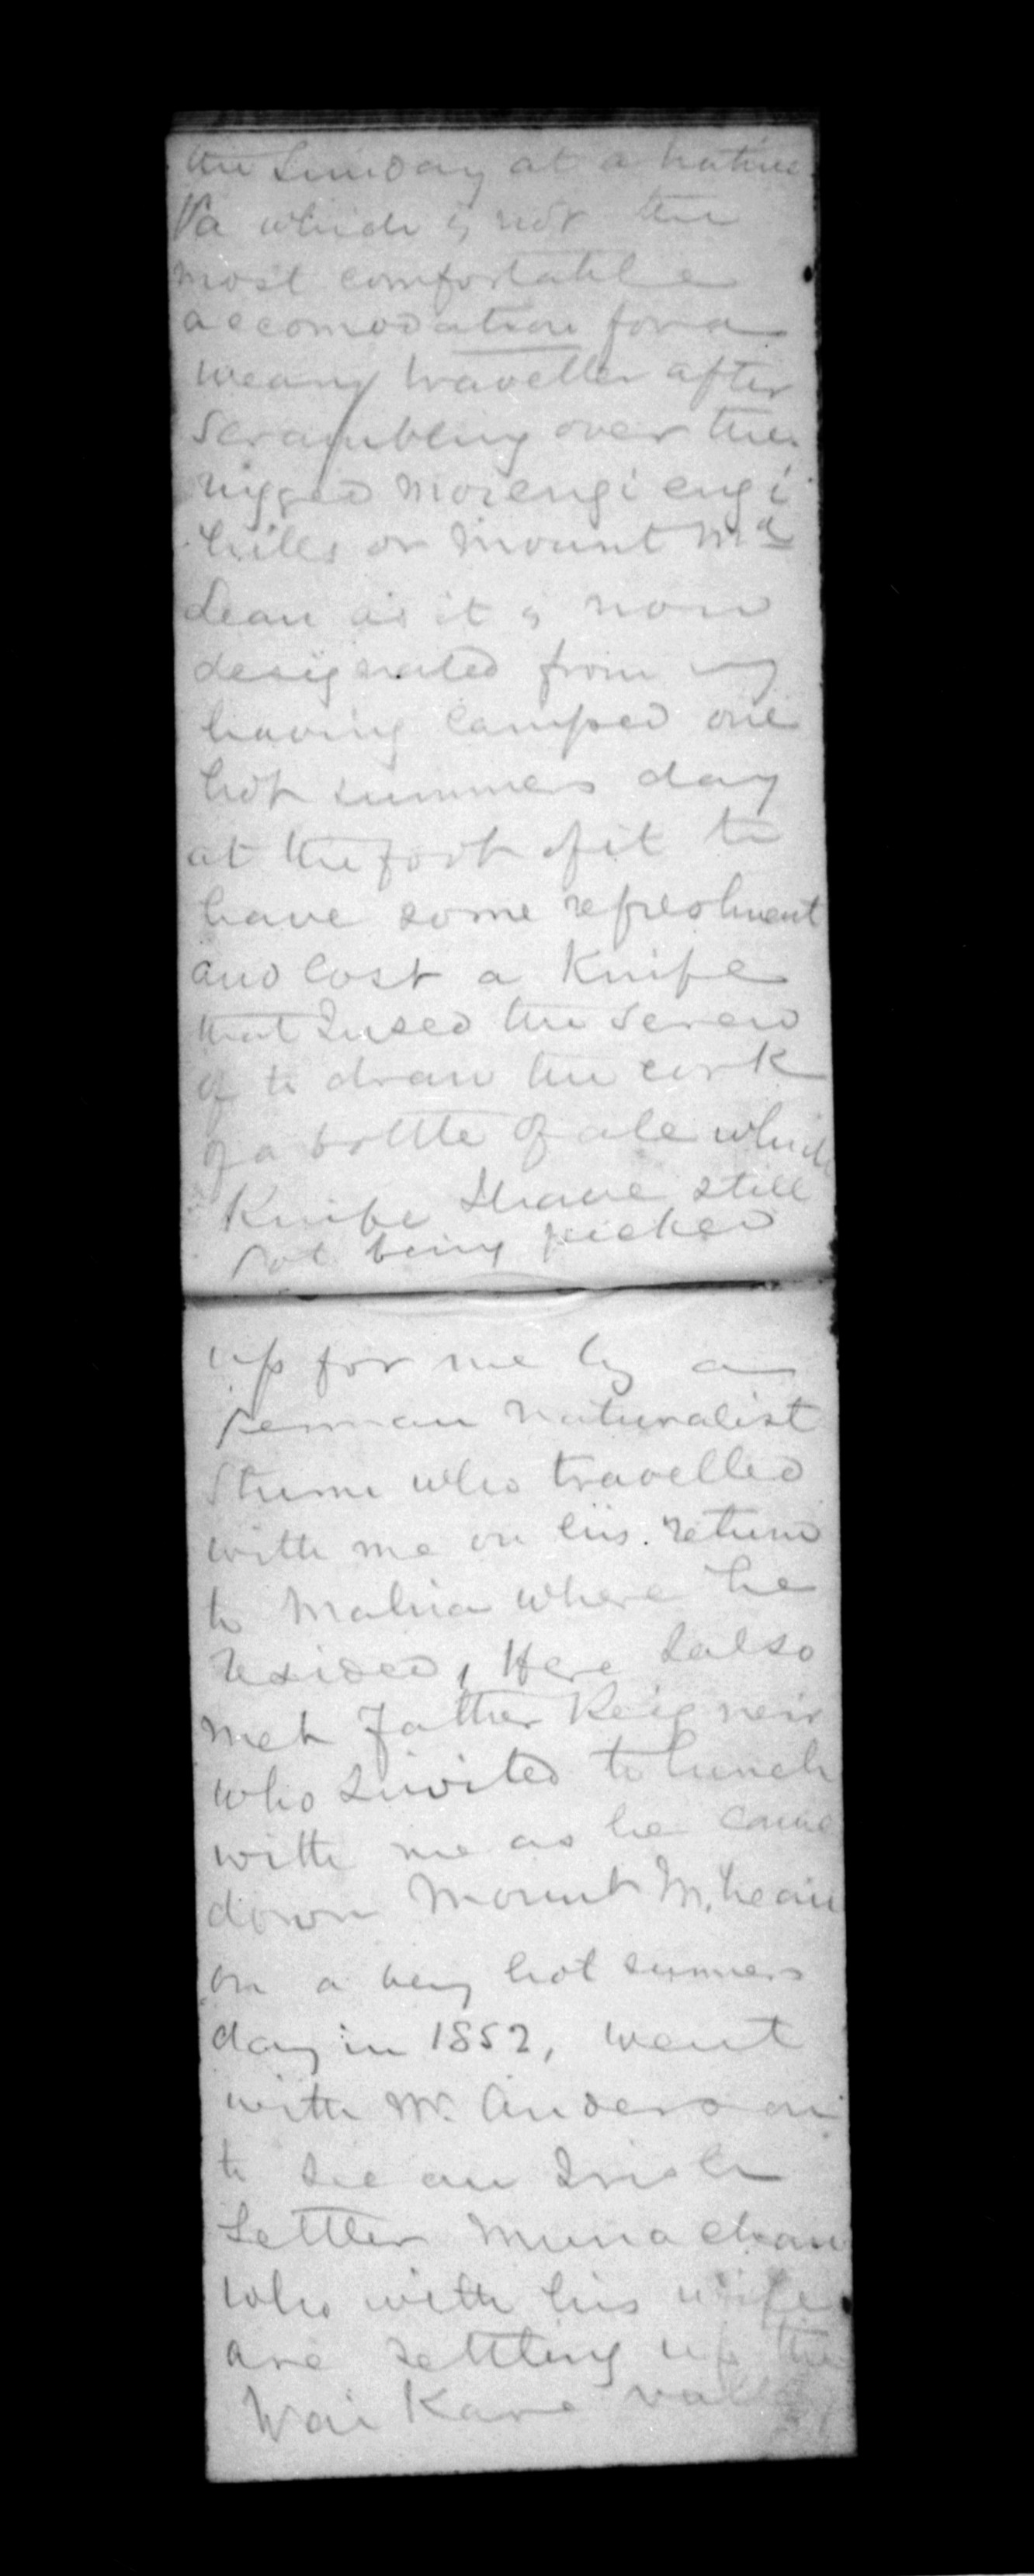 the Sunday at a native
Pa which is not the
most comfortable
accomodation for a
weary traveller after
scrambling over the
rugged Morengiengi
hills or Mount Mc
Lean as it is now
designated from my
having camped one
hot summers day
at the foot of it to
have some refreshment
and lost a Knife
that I used the screw
of to draw the cork
of a bottle of ale which
Knife I have still
not being picked
up for me by a
German naturalist
Sturm who travelled
with me on his return
to Mahia where he
resided, Here I also
met Father Reignier
who I invited to lunch
with me as he came
down Mount McLean
on a very hot summers
day in 1852, went
with Mr. Anderson
to see an Irish
Settler
who with his wife
are settling up the
Wai Kare valley